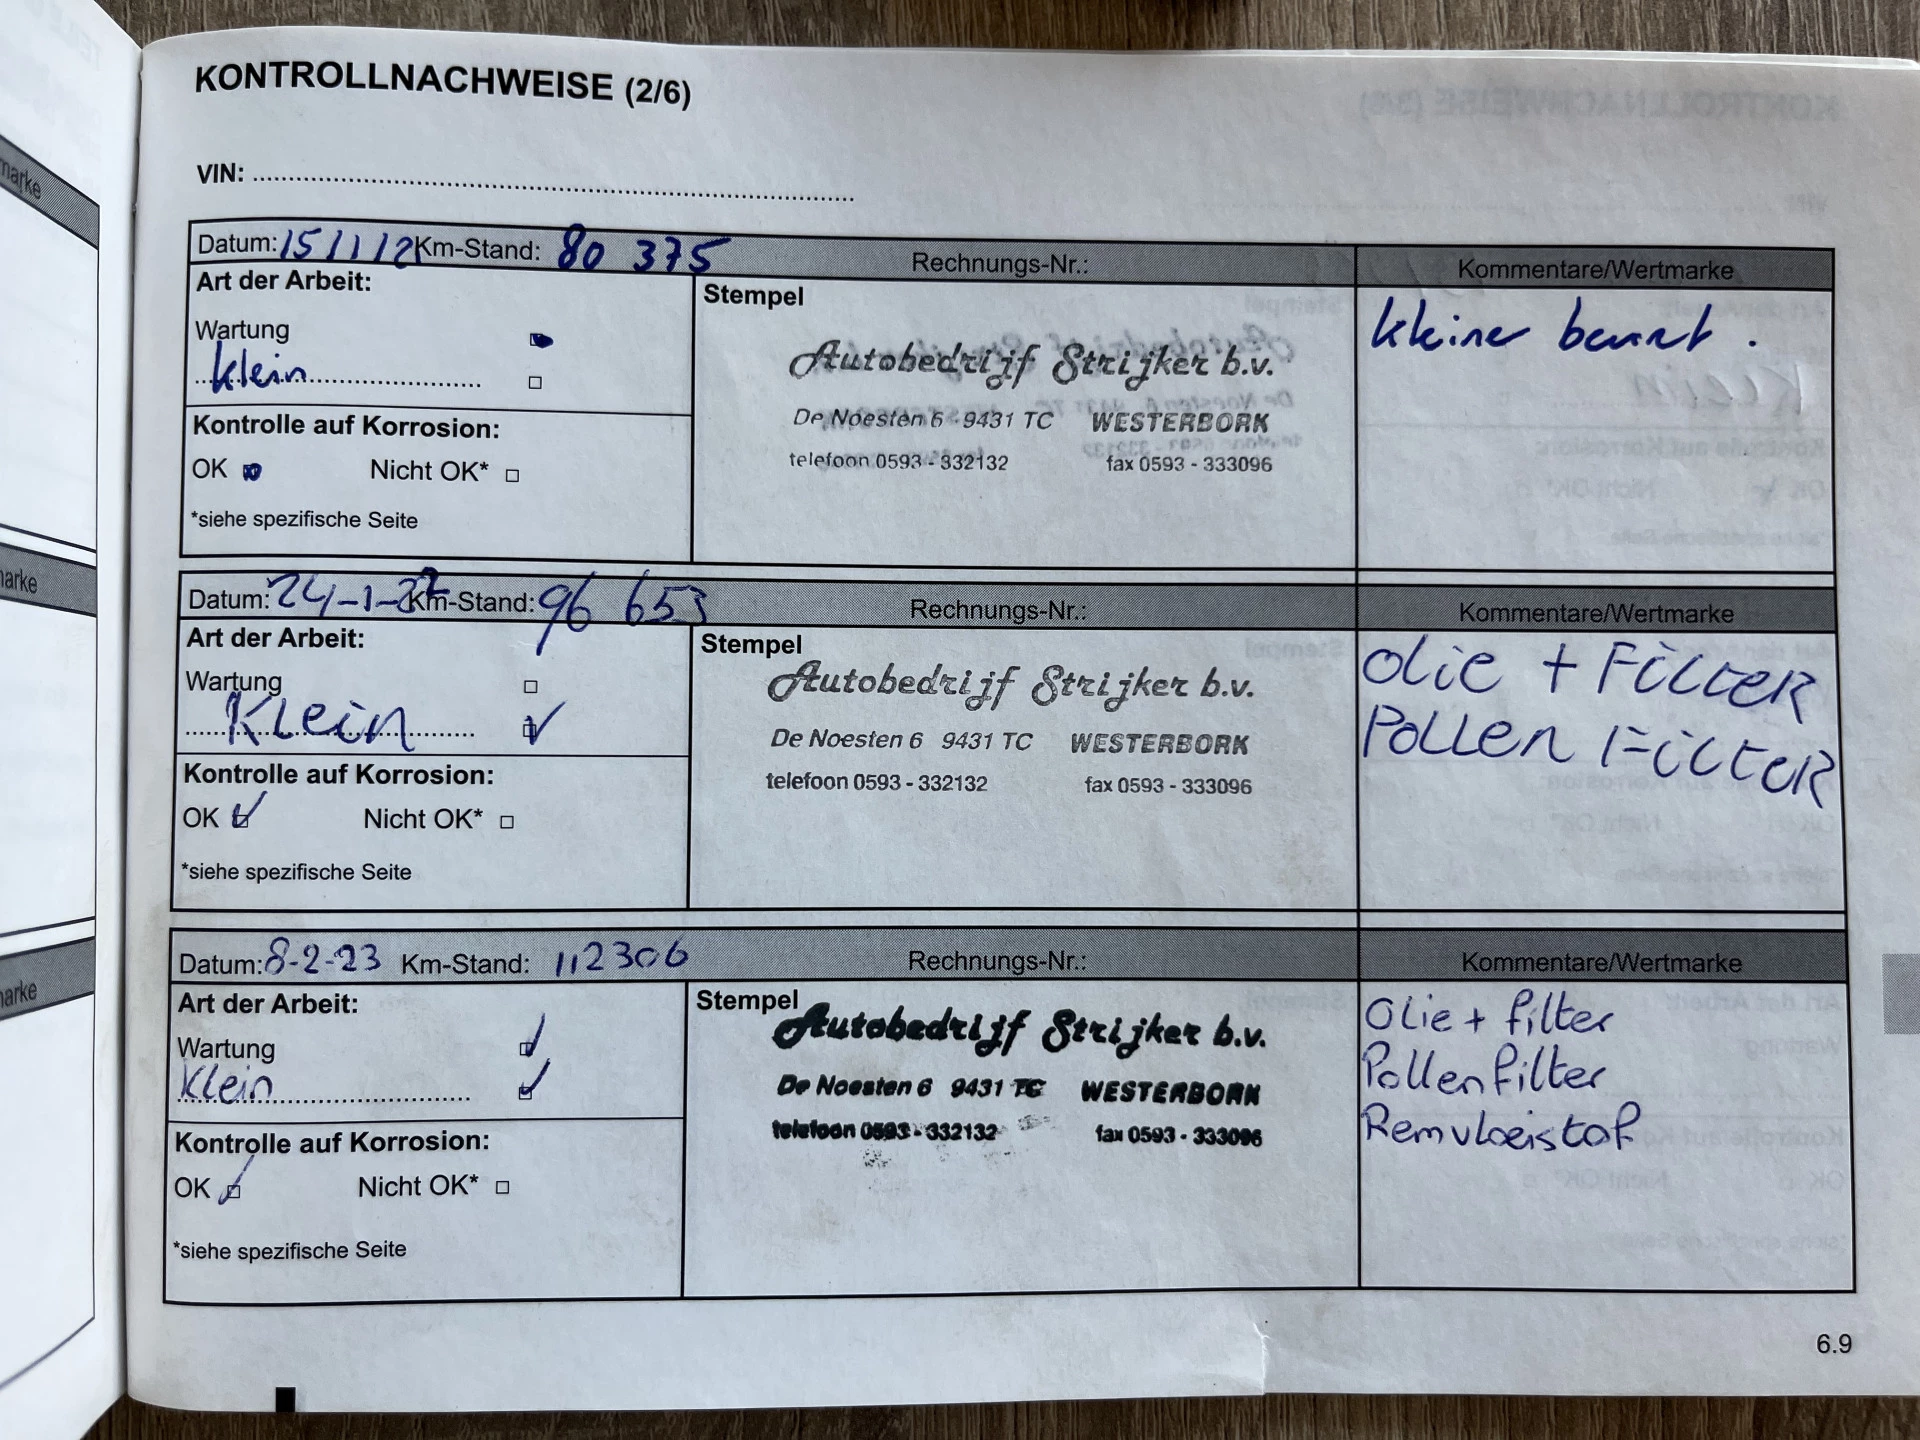 KONTROLLNACHWEISE (2/6)
VIN:
Datum: 15/1/12 Km-Stand: 80 375 Rechnungs-Nr.: Kommentare/Wertmarke
Art der Arbeit:
Wartung
klein
Kontrolle auf Korrosion:
OK Nicht OK*
*siehe spezifische Seite
Stempel
Autobedrijf Strijker b.v.
De Noesten 6 9431 TC WESTERBORK
telefoon 0593 - 332132 fax 0593 - 333096
kleiner
Datum: 24-1-22 Km-Stand: 96 653 Rechnungs-Nr.: Kommentare/Wertmarke
Art der Arbeit:
Wartung
Klein
Kontrolle auf Korrosion:
OK Nicht OK*
*siehe spezifische Seite
Stempel
Autobedrijf Strijker b.v.
De Noesten 6 9431 TC WESTERBORK
telefoon 0593 - 332132 fax 0593 - 333096
Olie + Filter
Pollen Filter
Datum: 8-2-23 Km-Stand: 112306 Rechnungs-Nr.: Kommentare/Wertmarke
Art der Arbeit:
Wartung
Klein
Kontrolle auf Korrosion:
OK Nicht OK*
*siehe spezifische Seite
Stempel
Autobedrijf Strijker b.v.
De Noesten 6 9431 TC WESTERBORK
telefoon 0593 - 332132 fax 0593 - 333096
Olie + filter
Pollenfilter
Remvloeistof
6.9
marke
marke
marke